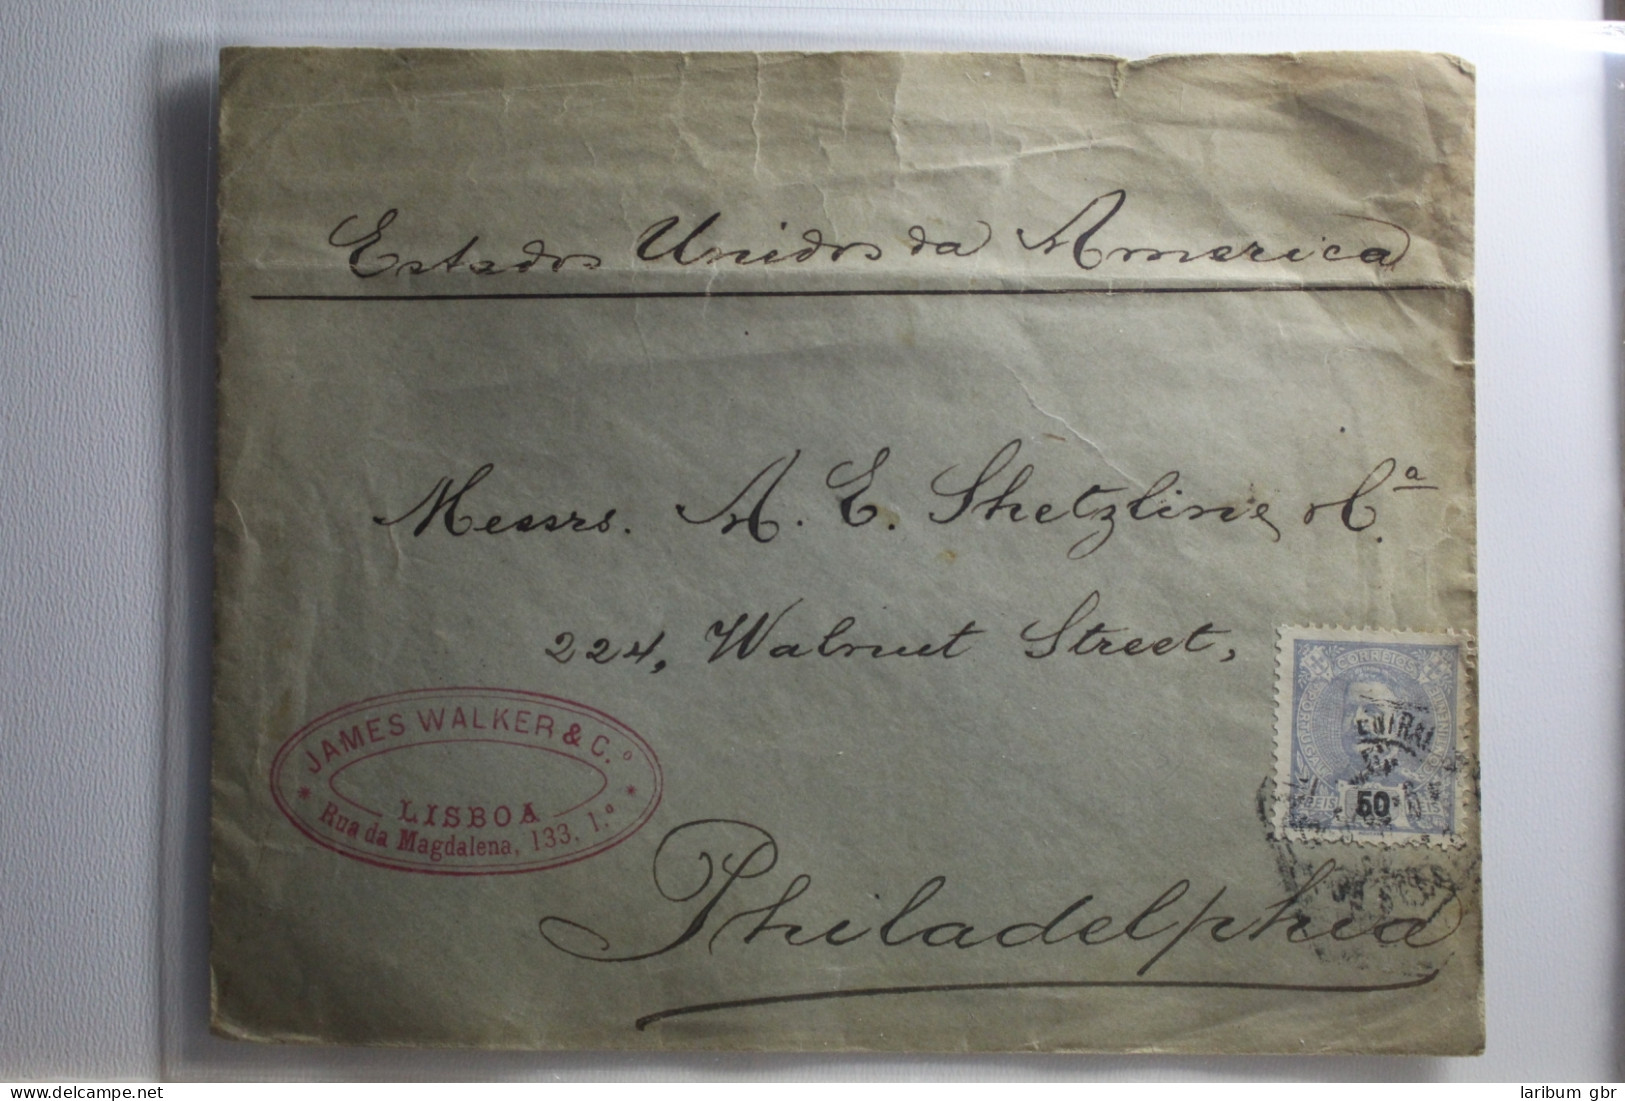 Estados Unidos da America
Messrs. A. E. Shetzline & Cª.
224, Walnut Street,
Philadelphia
JAMES WALKER & C.º
LISBOA
* Rua da Magdalena, 133, 1.º *
CORREIOS
50
REIS
delcampe.net
laribum gbr